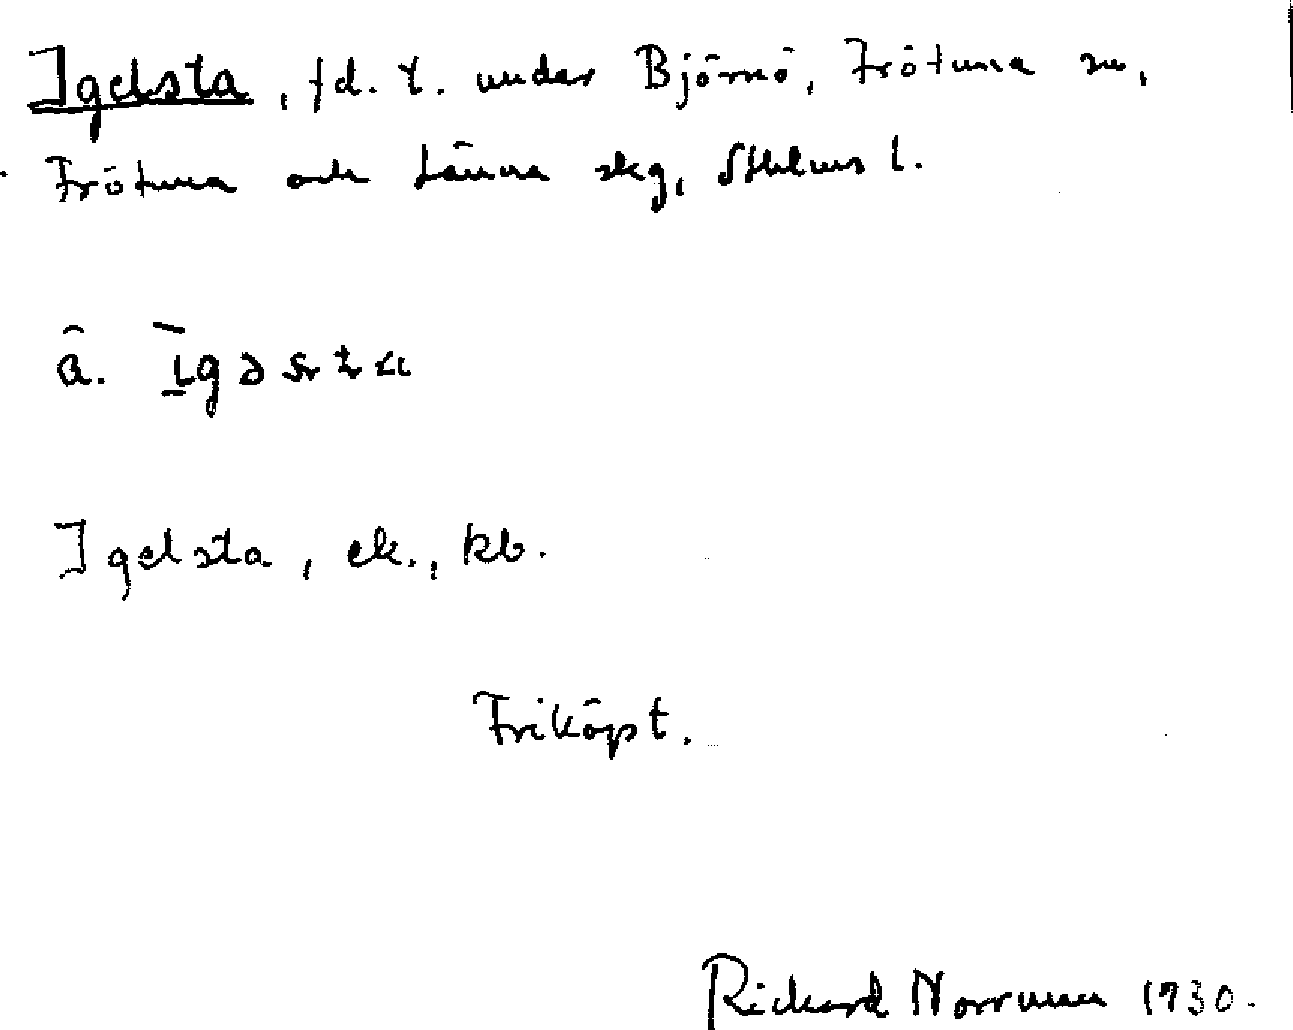 Igelsta, fd. t. under Björnö, Frötuna sn,
Frötuna och Länna skg, Sthlms l.
â. īgəsta
Igelsta, ek., kb.
Friköpt.
Rickard Norrman 1930.